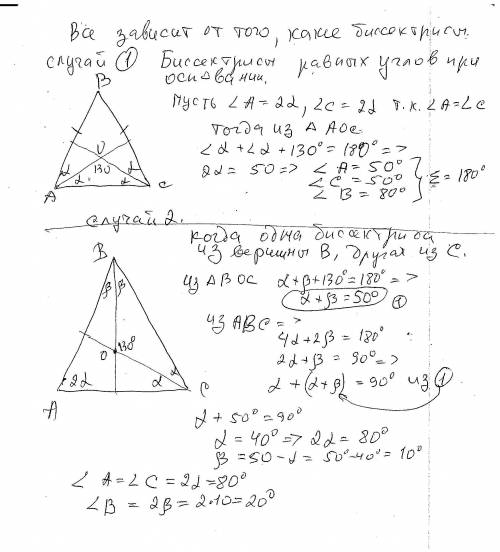 Все зависит от того, какие биссектрисы.
случай ① Биссектрисы равных углов при
основании.
Пусть ∠A = 2α, ∠C = 2α т.к. ∠A=∠C
тогда из △ AOC
∠α+∠α+130°=180° =>
2α = 50 => ∠A = 50°
∠C = 50°
∠B = 80°
Σ = 180°
B
O
130
α
α
α
α
A
C
случай 2.
когда одна биссектриса
из вершины B, другая из C.
из △BOC α+β+130°=180° =>
α+β=50° ①
из ABC =>
4α+2β = 180°
2α+β = 90° =>
α + (α+β) = 90° из ①
B
β β
O
130°
2α
α
α
A
C
α + 50° = 90°
α = 40° => 2α = 80°
β = 50-α = 50°-40° = 10°
∠A=∠C = 2α=80°
∠B = 2β = 2·10=20°